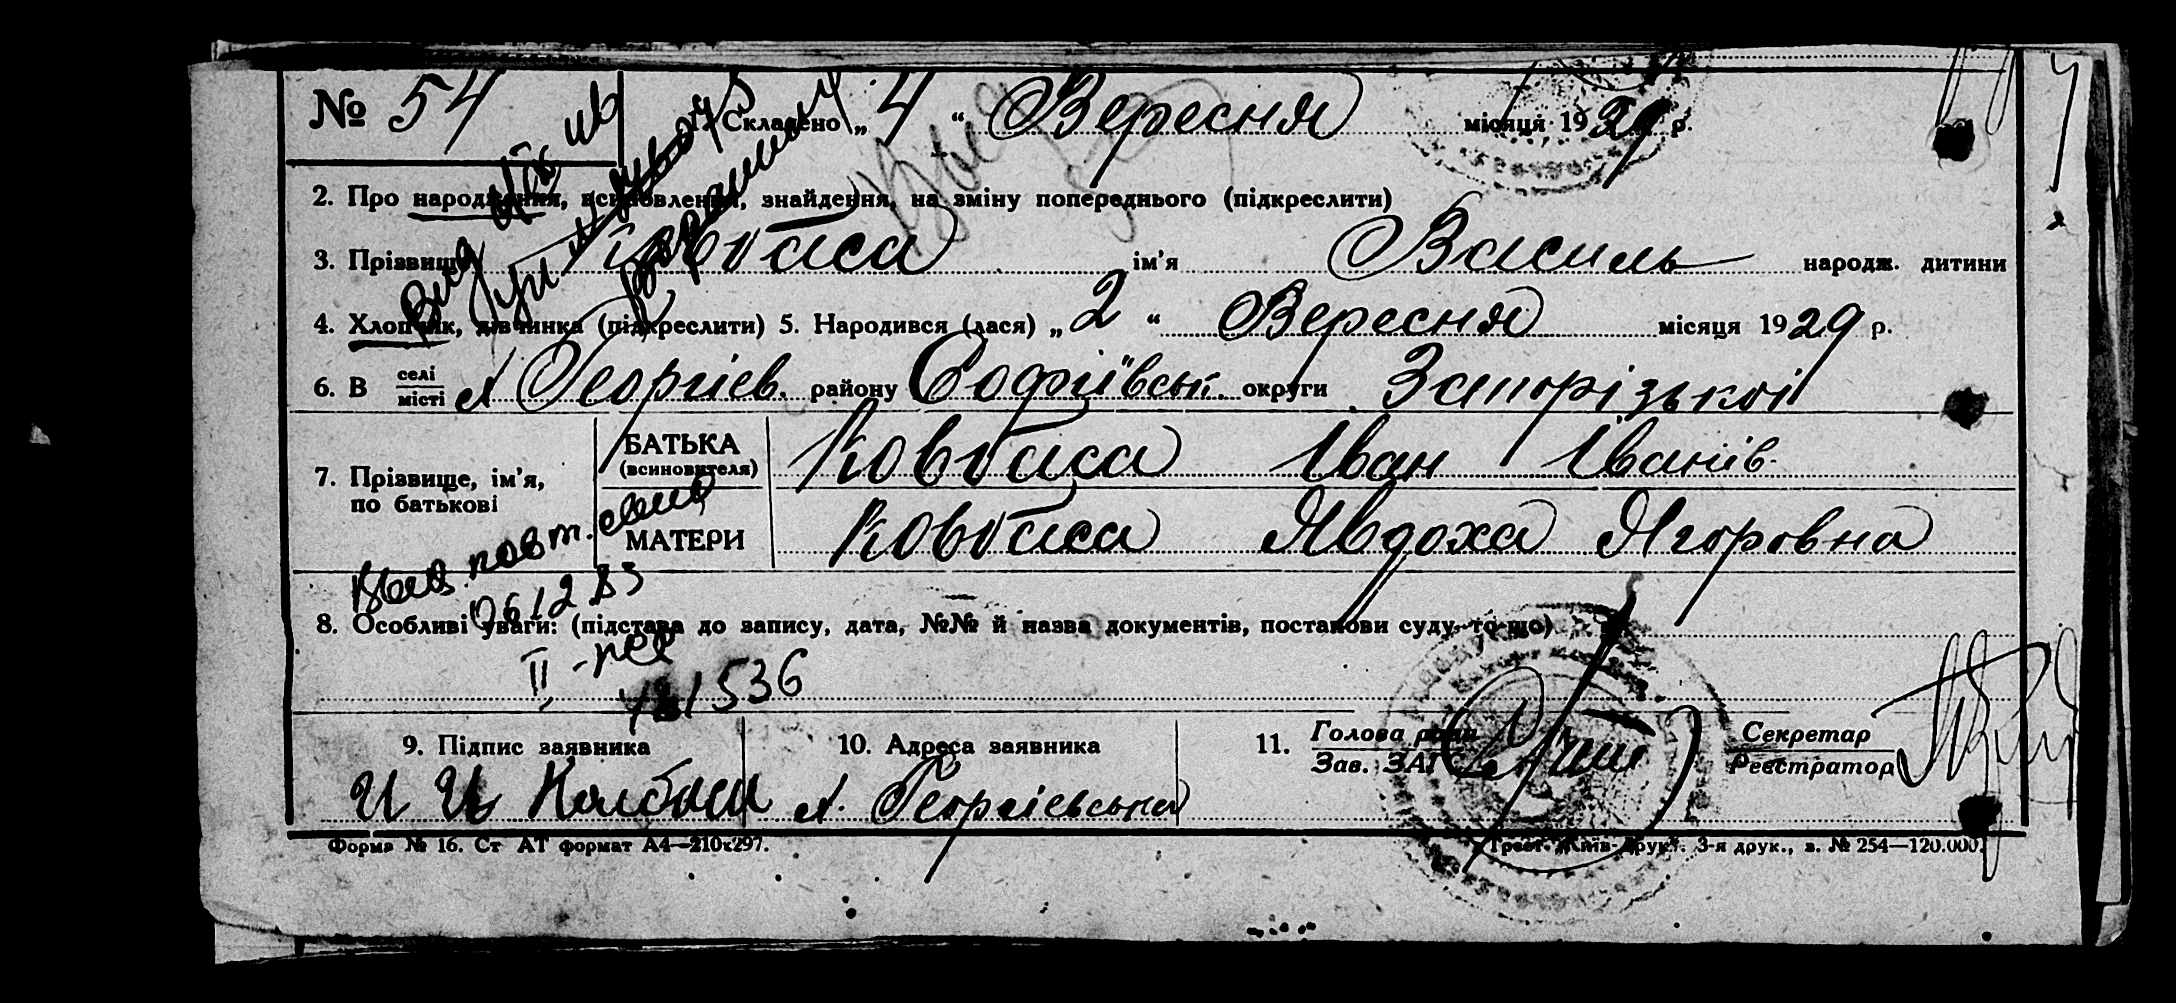 № 54
1. Складено „ 4 “ Вересня місяця 1929 р.
2. Про народження, всиновлення, знайдення, на зміну попереднього (підкреслити)
3. Прізвище Ковбаса ім'я Василь народж. дитини
4. Хлопчик, дівчинка (підкреслити) 5. Народився (лася) „ 2 “ Вересня місяця 1929 р.
6. В селі місті х. Георгієв. району Софіївськ. округи Запорізької
7. Прізвище, ім'я, по батькові
БАТЬКА (всиновителя) Ковбаса Іван Іванів
МАТЕРИ Ковбаса Явдоха Ягоровна
Выд. повт. свид
061283
8. Особливі уваги: (підстава до запису, дата, №№ й назва документів, постанови суду то-що)
II
481536
9. Підпис заявника
10. Адреса заявника
11. Голова ради Зав. ЗАГС
Секретар Реєстратор
И И Колбаса
х. Георгієвська
Форма № 16. Ст АТ формат А4—210х297.
Трест. „Київ-Друк“. 3-я друк., з. № 254—120.000.